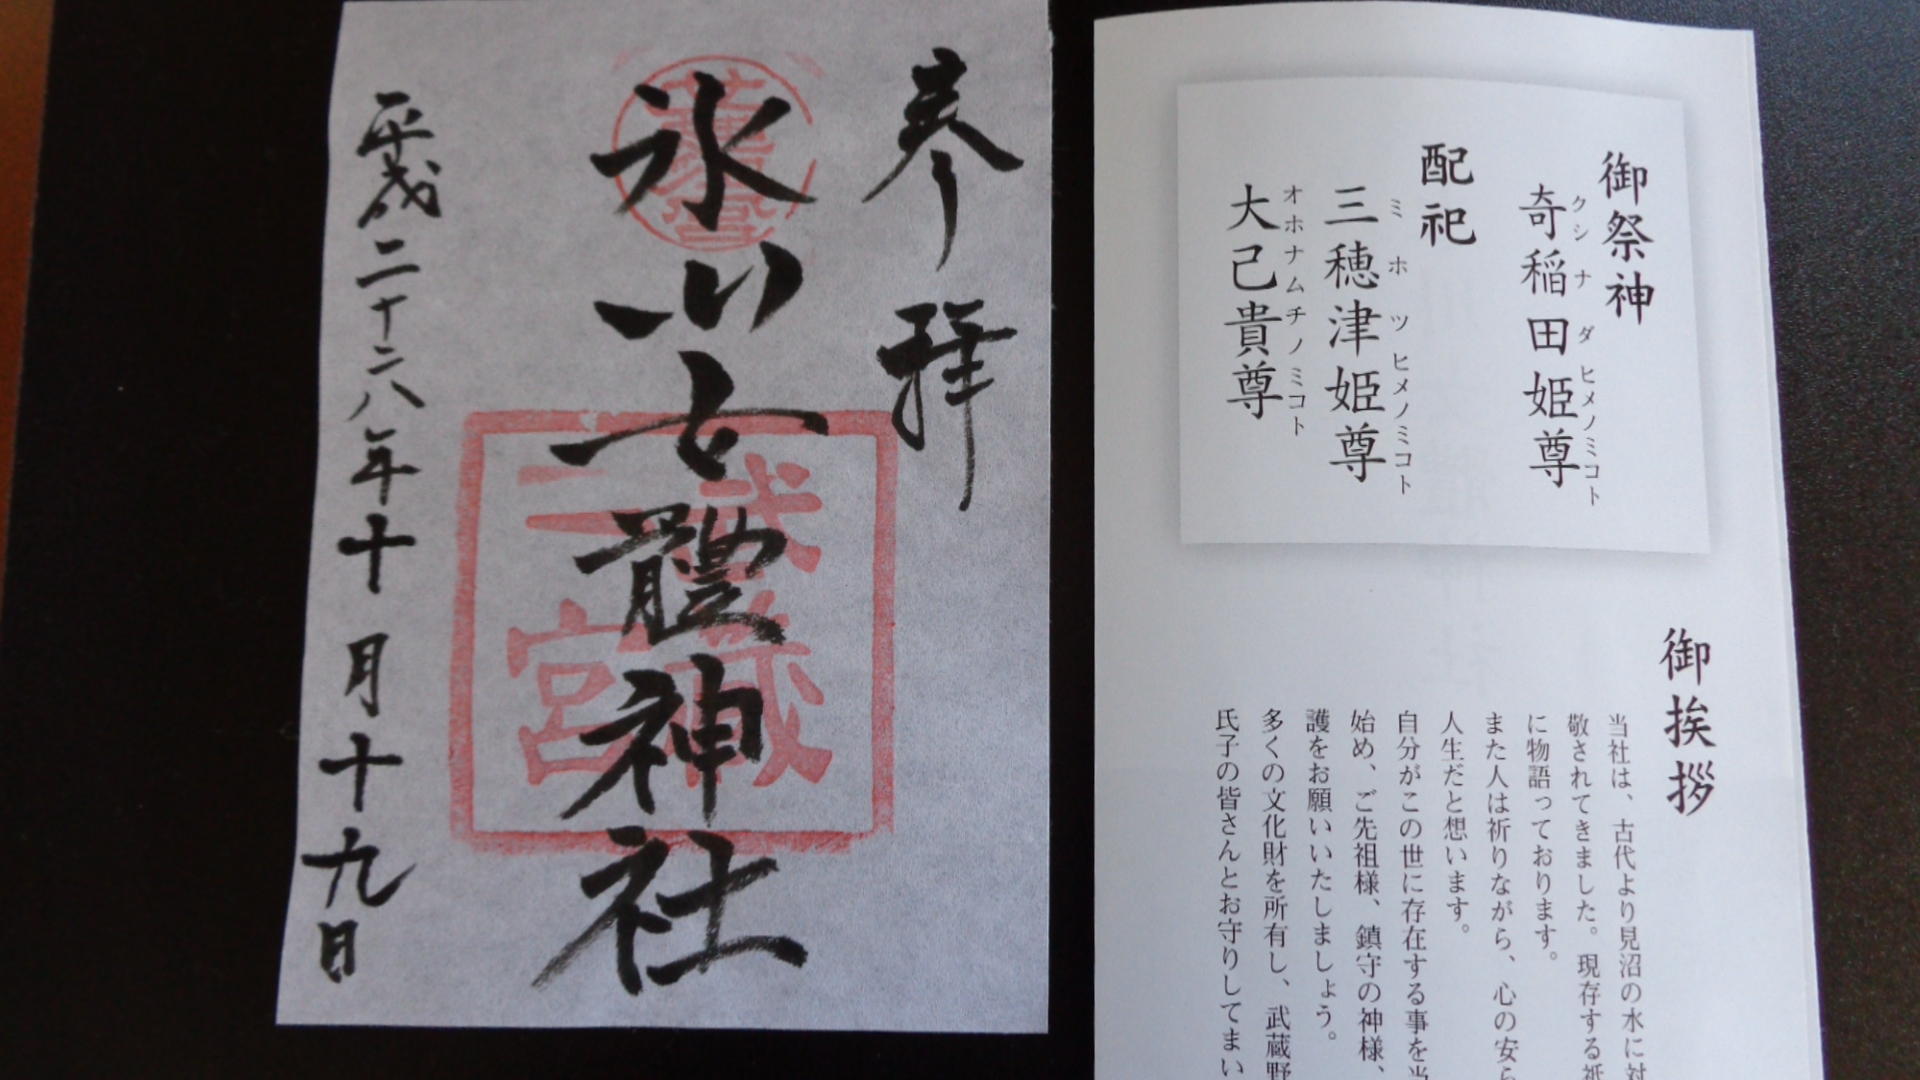 奉拝
氷川女體神社
武蔵
二宮
平成二十八年十月十九日
御祭神
奇稲田姫尊
クシナダヒメノミコト
配祀
三穂津姫尊
ミホツヒメノミコト
大己貴尊
オホナムチノミコト
御挨拶
当社は、古代より見沼の水に対
敬されてきました。現存する祇
に物語っております。
また人は祈りながら、心の安ら
人生だと想います。
自分がこの世に存在する事を当
始め、ご先祖様、鎮守の神様、
護をお願いいたしましょう。
多くの文化財を所有し、武蔵野
氏子の皆さんとお守りしてまい